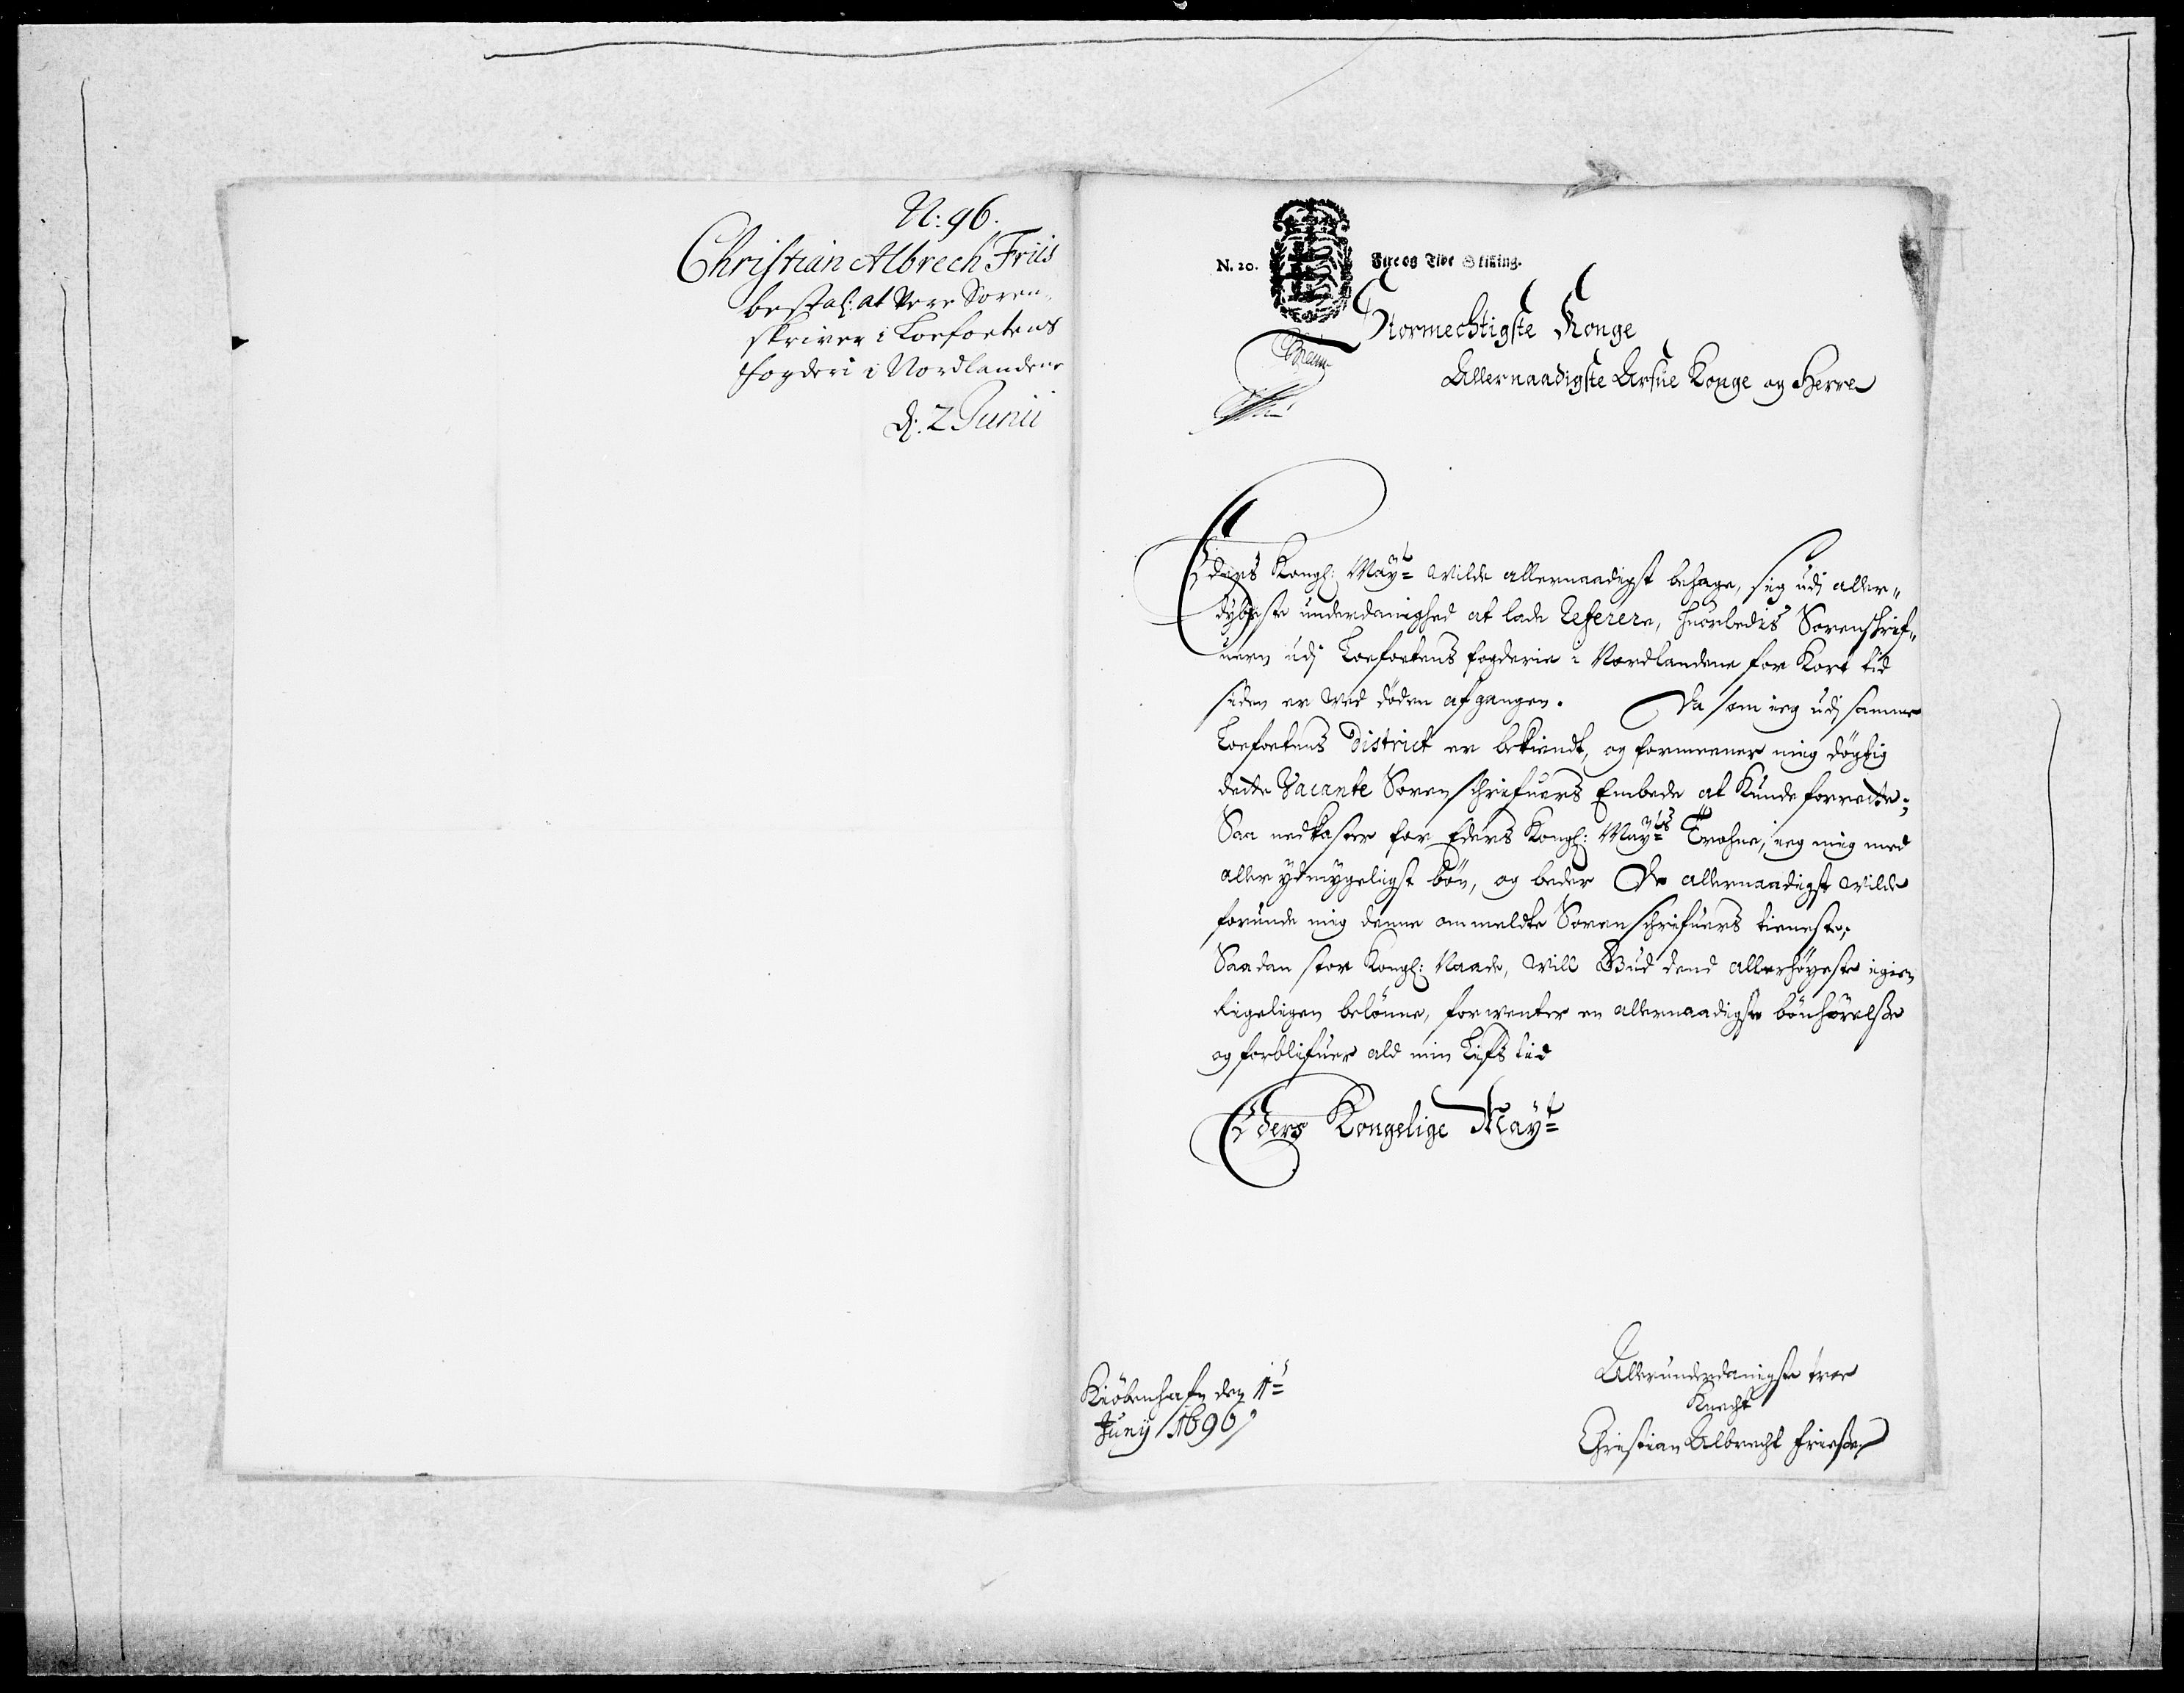 N: 96.
Christian Albrech Friis
bestal: at Vere Soren,
skriver i Loefoetens
fogderi i Nordlandene
d: 2 Junii
N. 20. Fire og Tive Skilling.
Stormechtigste Konge
Allernaadigste Arfue Konge og Herre
Eders Kongl: Mayt= wilde allernaadigst behage, sig udj aller„
dybeste underdanighed at lade Referere, huorledis Sorenschrif„
uern udj Loefoetens fogderie i Nordlandene for Kort tid
siden er wed döden afgangen. Da som ieg udj samme
Loefoetens District er bekiendt, og formeener mig dögtig
dette Vacante Sorenschrifuers Embede at Kunde forrette;
Saa nedkaster for Eders Kongl: Mayts= Trohne, ieg mig med
aller ydmygeligst bön, og beder De allernaadigst wilde
forunde mig denne ommeldte Sorenschrifuers tieneste;
Saadan stor Kongl: Naade, will Gud dend allerhöyeste igien
Rigeligen belönne, forwenter en allernaadigste bönhörelße
og forblifuer ald min Lifs tid
Eders Kongelige Mayt=
Kiöbenhafn den 1=
Junij 1696
Allerunderdanigste troe
Knecht
Christian Albrecht Frieß